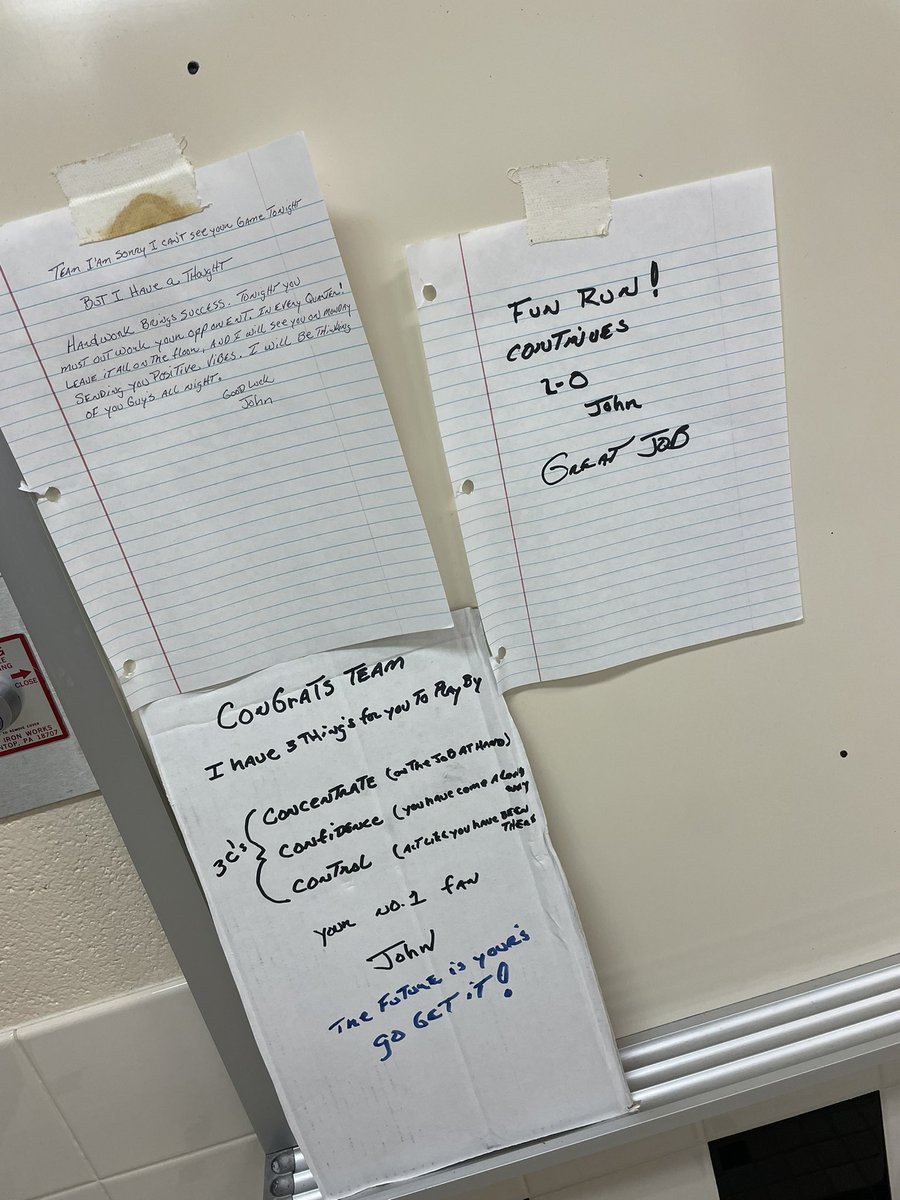 TEAM I'AM SORRY I CAN'T SEE YOUR GAME TONIGHT
BUT I HAVE A THOUGHT
HARDWORK BRINGS SUCCESS. TONIGHT YOU
MUST OUT WORK YOUR OPPONENT. IN EVERY QUARTER!
LEAVE IT ALL ON THE FLOOR, AND I WILL SEE YOU ON MONDAY
SENDING YOU POSITIVE VIBES. I WILL BE THINKING
OF YOU GUYS ALL NIGHT.
GOOD LUCK
John
FUN RUN!
CONTINUES
2-0
John
GREAT JOB
CONGRATS TEAM
I HAVE 3 THING'S FOR YOU TO PLAY BY
3C's
CONCENTRATE (ON THE JOB AT HAND)
CONFIDENCE (YOU HAVE COME A LONG
WAY
CONTROL (ACT LIKE YOU HAVE BEEN
THERE
YOUR NO.1 FAN
JOHN
THE FUTURE IS YOUR'S
GO GET IT!
CLOSE
TO REMOVE COVER
IRON WORKS
PA 18707